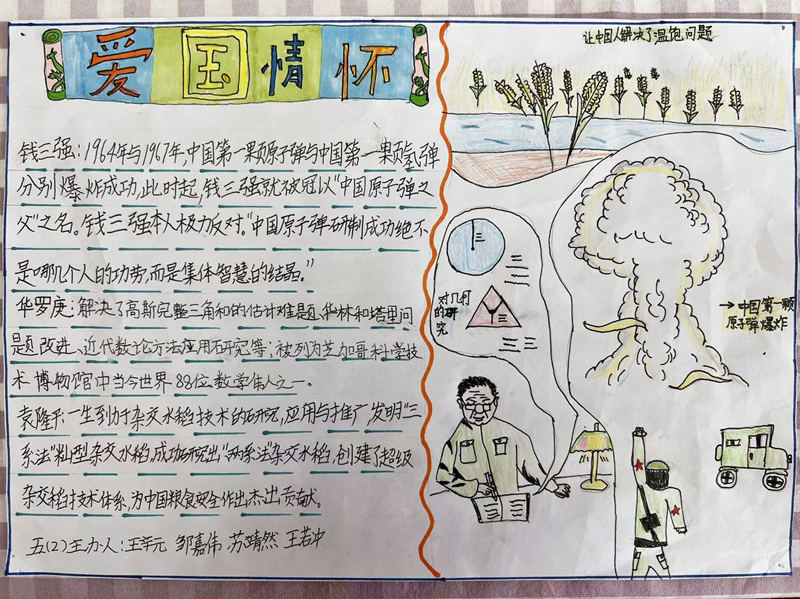 爱国情怀
钱三强:1964年与1967年,中国第一颗原子弹与中国第一颗氢弹
分别爆炸成功,此时起,钱三强就被冠以“中国原子弹之
父”之名。钱三强本人极力反对。“中国原子弹研制成功绝不
是哪几个人的功劳,而是集体智慧的结晶。”
华罗庚:解决了高斯完整三角和的估计难题、华林和塔里问
题改进、近代数论方法应用研究等;被列为芝加哥科学技
术博物馆中当今世界88位数学伟人之一。
袁隆平:一生致力于杂交水稻技术的研究,应用与推广发明“三
系法”籼型杂交水稻,成功研究出“两系法”杂交水稻,创建了超级
杂交稻技术体系,为中国粮食安全作出杰出贡献。
五(2)主办人:王宇元 邹嘉伟 苏靖然 王若冲
让中国人解决了温饱问题
对几何
的研
究
→中国第一颗
原子弹爆炸